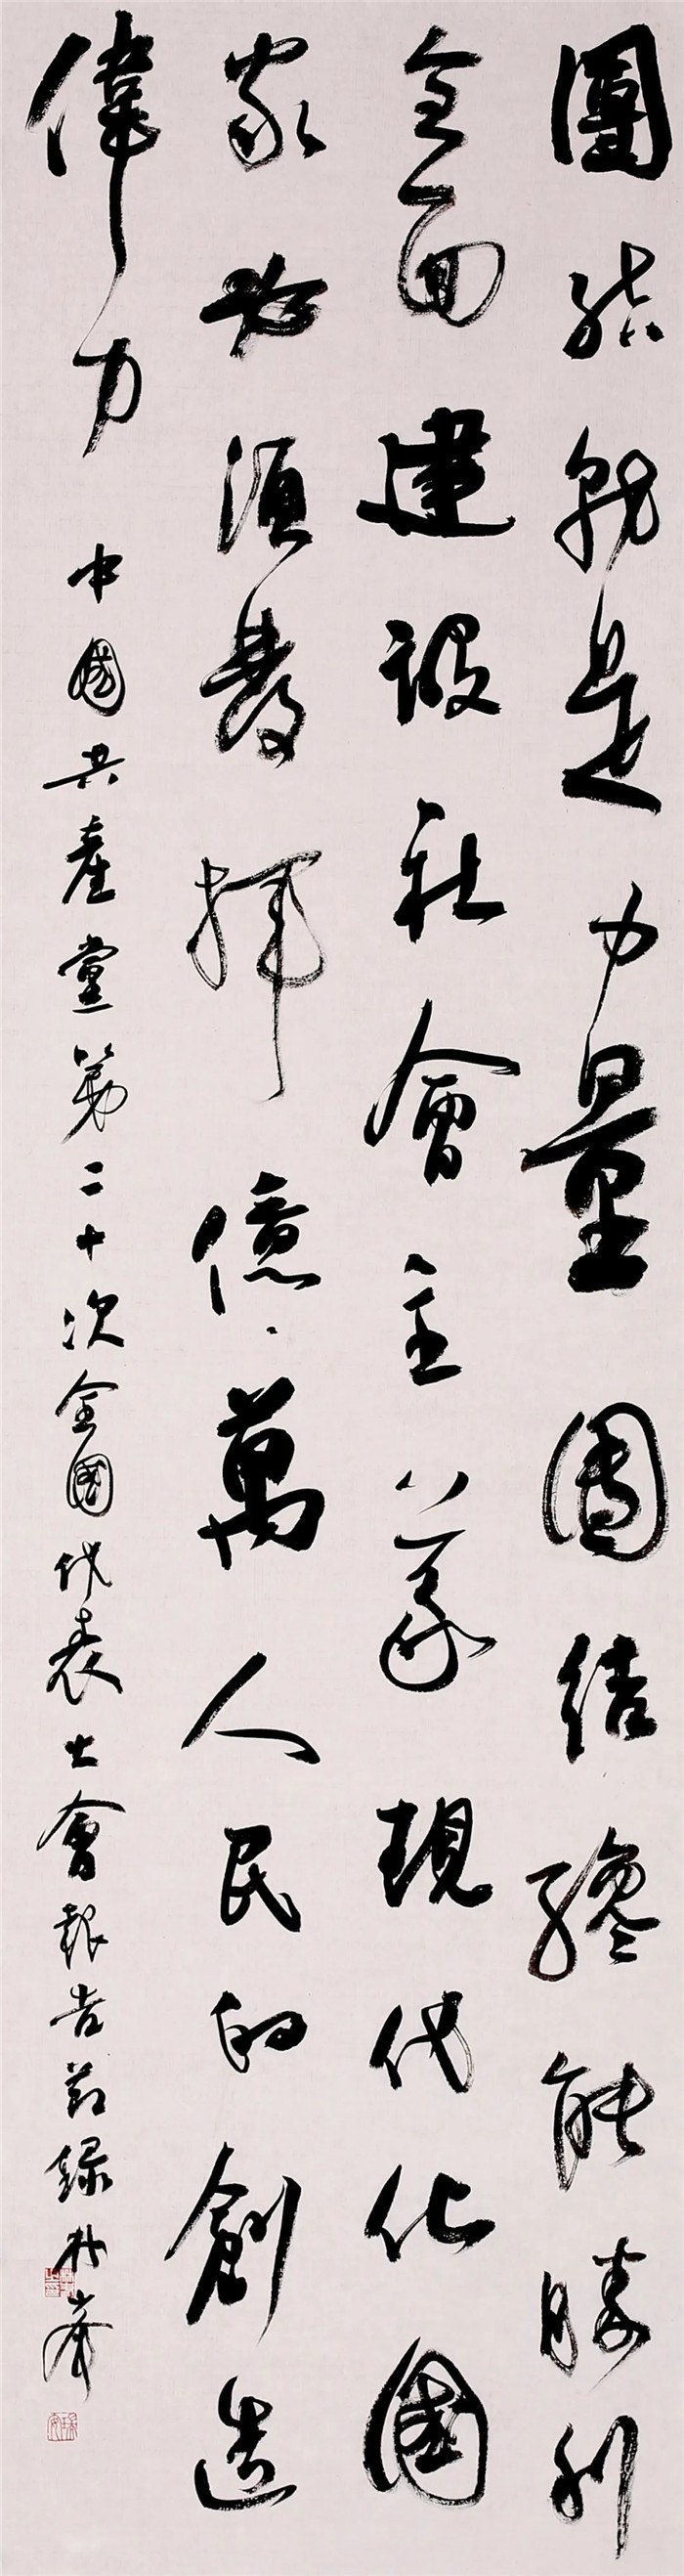 團結就是力量團結纔能勝利
全面建設社會主義現代化國
家必須發揮億萬人民的創造
偉力 中國共產黨第二十次全國代表大會報告節錄